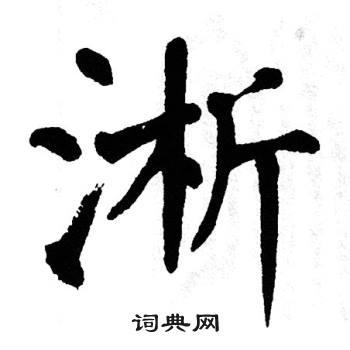 淅
词典网